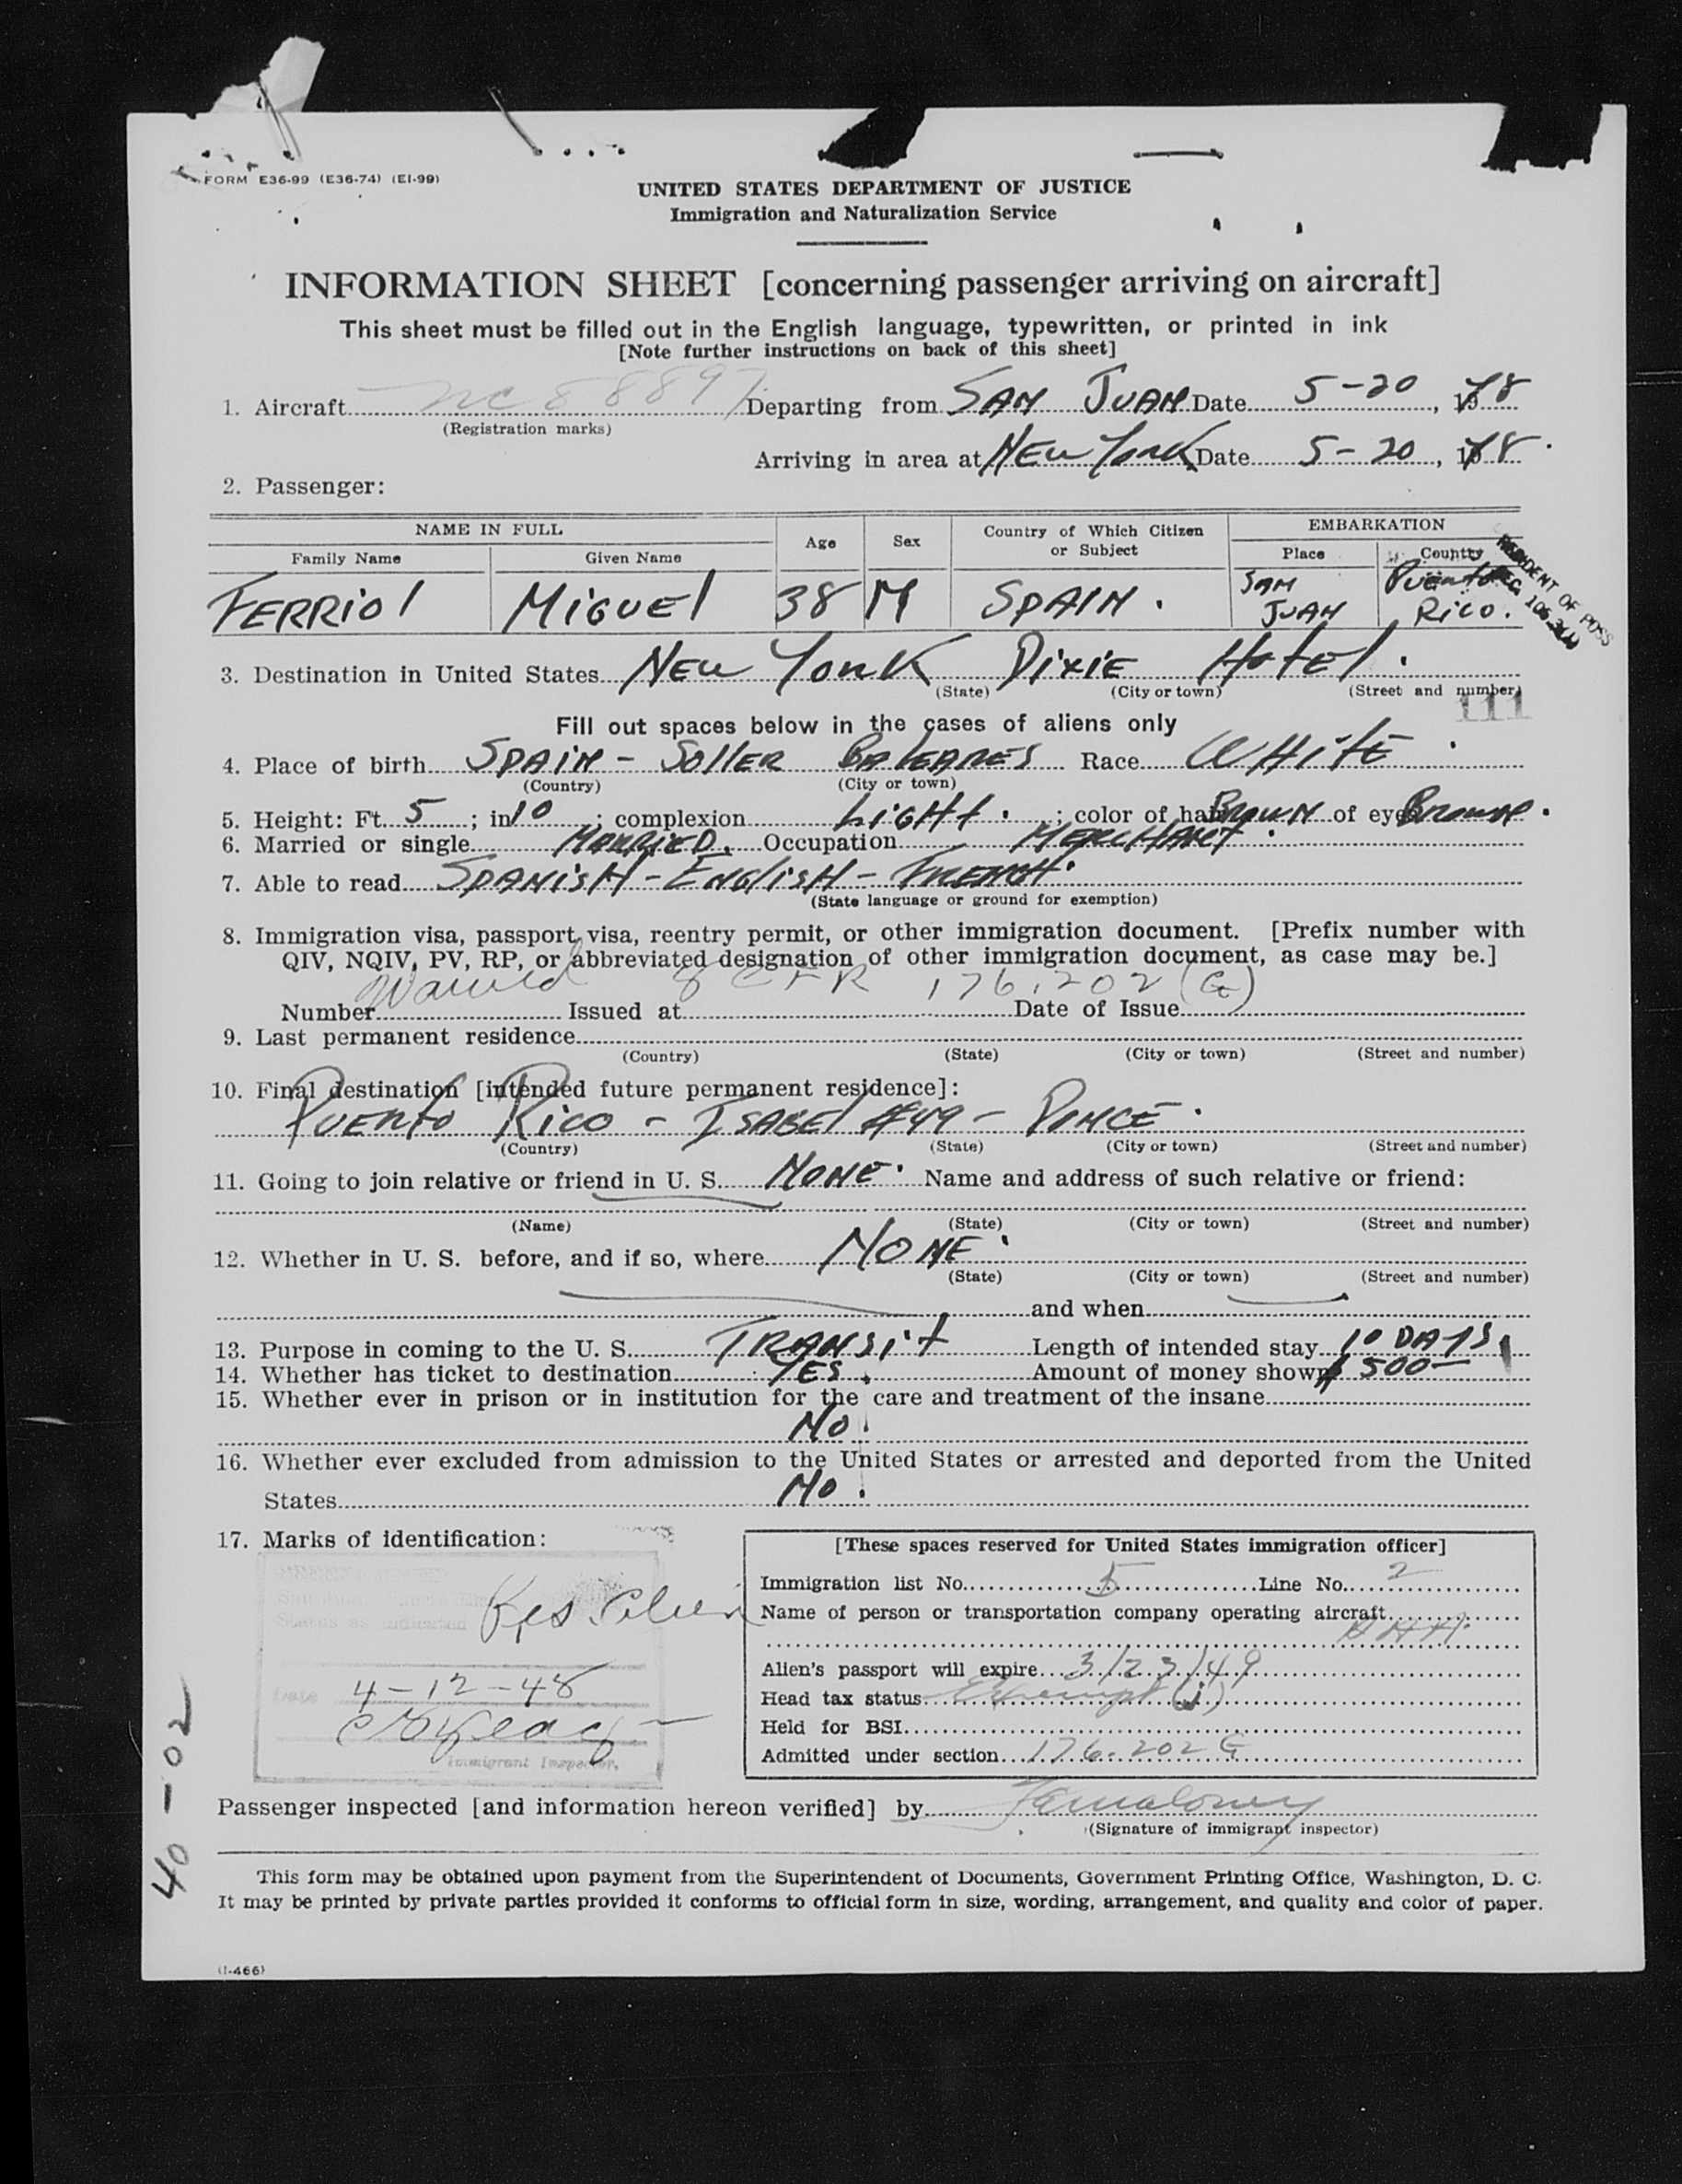 FORM E36-99 (E36-74) (E1-99)
UNITED STATES DEPARTMENT OF JUSTICE
Immigration and Naturalization Service
INFORMATION SHEET [concerning passenger arriving on aircraft]
This sheet must be filled out in the English language, typewritten, or printed in ink
[Note further instructions on back of this sheet]
1. Aircraft NC 88897 Departing from SAN JUAN Date 5-20, 48
(Registration marks)
Arriving in area at NEW YORK Date 5-20, 48.
2. Passenger:
NAME IN FULL Age Sex Country of Which Citizen or Subject EMBARKATION
Family Name Given Name Place Country
FERRIOl MiGUEl 38 M SPAIN. SAN JUAN PUERTO RICO.
RESIDENT OF POSS
3. Destination in United States NEW YORK DiXiE HotEl.
(State) (City or town) (Street and number)
111
Fill out spaces below in the cases of aliens only
4. Place of birth SPAiN - SOllER BALEARES Race WHitE.
(Country) (City or town)
5. Height: Ft. 5; in. 10; complexion LiGHt.; color of hair BROWN of eyes BROWN.
6. Married or single MARRIED. Occupation MERCHANT.
7. Able to read SPANiSH - ENGliSH - FRENCH.
(State language or ground for exemption)
8. Immigration visa, passport visa, reentry permit, or other immigration document. [Prefix number with
QIV, NQIV, PV, RP, or abbreviated designation of other immigration document, as case may be.]
Waived 8 CFR 176.202 (G)
Number Issued at Date of Issue
9. Last permanent residence
(Country) (State) (City or town) (Street and number)
10. Final destination [intended future permanent residence]:
PUERto RiCO - ISABEl #49 - PONCE.
(Country) (State) (City or town) (Street and number)
11. Going to join relative or friend in U. S. NONE. Name and address of such relative or friend:
(Name) (State) (City or town) (Street and number)
12. Whether in U. S. before, and if so, where NONE.
(State) (City or town) (Street and number)
and when
13. Purpose in coming to the U. S. TRANSit Length of intended stay 10 DAYS
14. Whether has ticket to destination YES. Amount of money shown $ 500-
15. Whether ever in prison or in institution for the care and treatment of the insane
NO.
16. Whether ever excluded from admission to the United States or arrested and deported from the United
States NO.
17. Marks of identification:
Status as indicated Res. Alien
Date 4-12-48
Immigrant Inspector.
[These spaces reserved for United States immigration officer]
Immigration list No. 5 Line No. 2
Name of person or transportation company operating aircraft
Alien's passport will expire 3/23/49
Head tax status Exempt (j)
Held for BSI
Admitted under section 176.202 G
Passenger inspected [and information hereon verified] by
(Signature of immigrant inspector)
40-02
This form may be obtained upon payment from the Superintendent of Documents, Government Printing Office, Washington, D. C.
It may be printed by private parties provided it conforms to official form in size, wording, arrangement, and quality and color of paper.
(I-466)